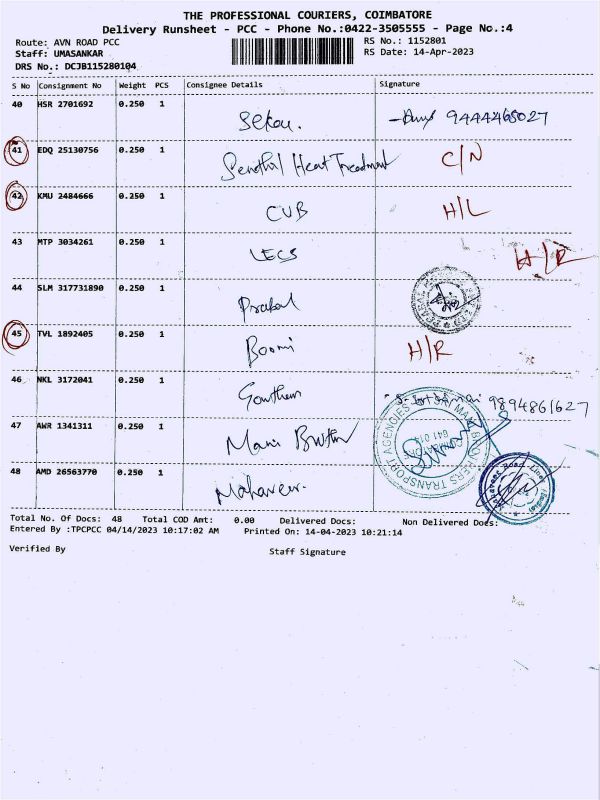 THE PROFESSIONAL COURIERS, COIMBATORE
Delivery Runsheet - PCC - Phone No.:0422-3505555 - Page No.:4
Route: AVN ROAD PCC RS No.: 1152801
Staff: UMASANKAR RS Date: 14-Apr-2023
DRS No.: DCJB115280104
S No Consignment No Weight PCS Consignee Details Signature
40 HSR 2701692 0.250 1 Sekar. 9444465027
41 EDQ 25130756 0.250 1 Senthil Heat Treatment C/N
42 KMU 2484666 0.250 1 CUB H/L
43 MTP 3034261 0.250 1 LECS H/R
44 SLM 317731890 0.250 1
45 TVL 1892405 0.250 1 Boomi H/R
46 NKL 3172041 0.250 1 Gowthem 9894861627
47 AWR 1341311 0.250 1 Mani
48 AMD 26563770 0.250 1 Mahaveer.
Total No. Of Docs: 48 Total COD Amt: 0.00 Delivered Docs: Non Delivered Docs:
Entered By :TPCPCC 04/14/2023 10:17:02 AM Printed On: 14-04-2023 10:21:14
Verified By Staff Signature